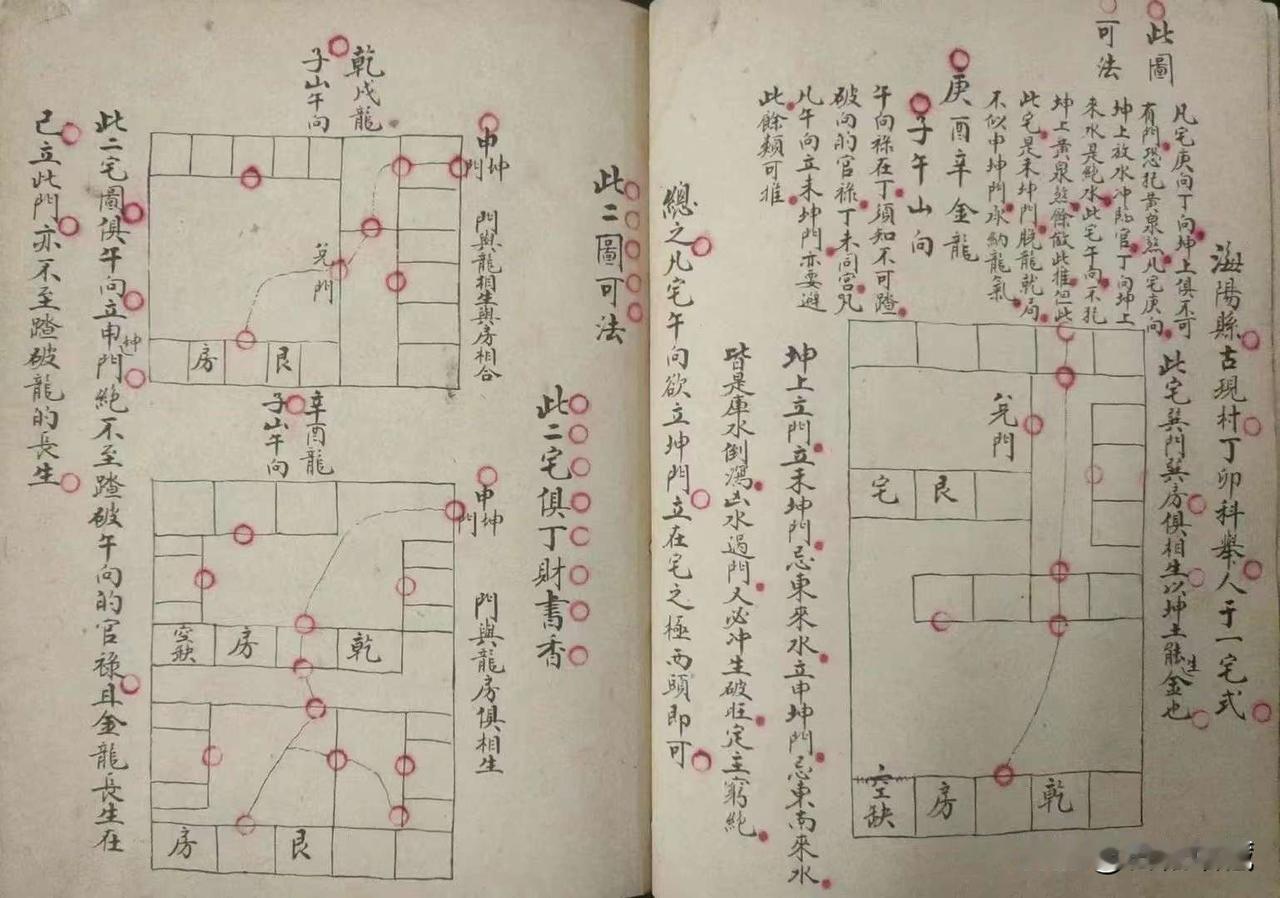 此圖
可法
海陽縣古現村丁卯科舉人于一宅式
凡宅庚向丁向坤上俱不可
有門恐犯黃泉煞凡宅庚向
坤上放水冲臨官丁向坤上
來水是純水此宅午向不犯
坤上黃泉煞餘倣此推但此
此宅是未坤門脫龍乾局
不似申坤門承納龍氣
此宅巽門巽房俱相生以坤土能生金也
庚酉辛金龍
子午山向
午向祿在丁須知不可踏
破向的官祿丁未同宮凡
凡午向立未坤門亦要避
此餘類可推
兌門
宅
艮
空缺
房
乾
坤上立門立未坤門忌東來水立申坤門忌東南來水
皆是庫水倒瀉凶水過門又必冲生破旺定主窮絕
總之凡宅午向欲立坤門立在宅之極西頭即可
此二圖可法
此二宅俱丁財書香
乾戌龍
子山午向
申坤門
門與龍相生與房相合
兌門
房
艮
辛酉龍
子山午向
申坤門
門與龍房俱相生
空缺
房
乾
房
艮
此二宅圖俱午向立申坤門絕不至踏破午向的官祿且金龍長生在
己立此門亦不至踏破龍的長生